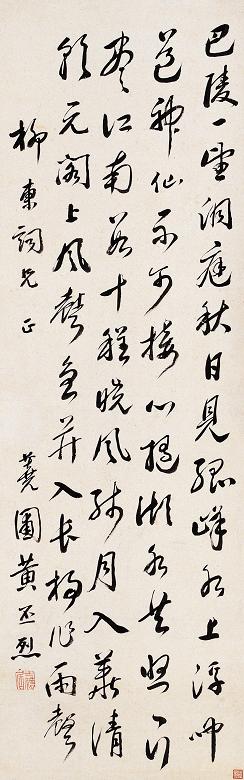 巴陵一望洞庭秋日見孤峰水上浮聞
道神仙不可接心隨湖水共悠〻行
盡江南數十程曉風殘月入華清
朝元閣上風聲急并入長楊作雨聲
柳東詞兄正 蕘圃黃丕烈